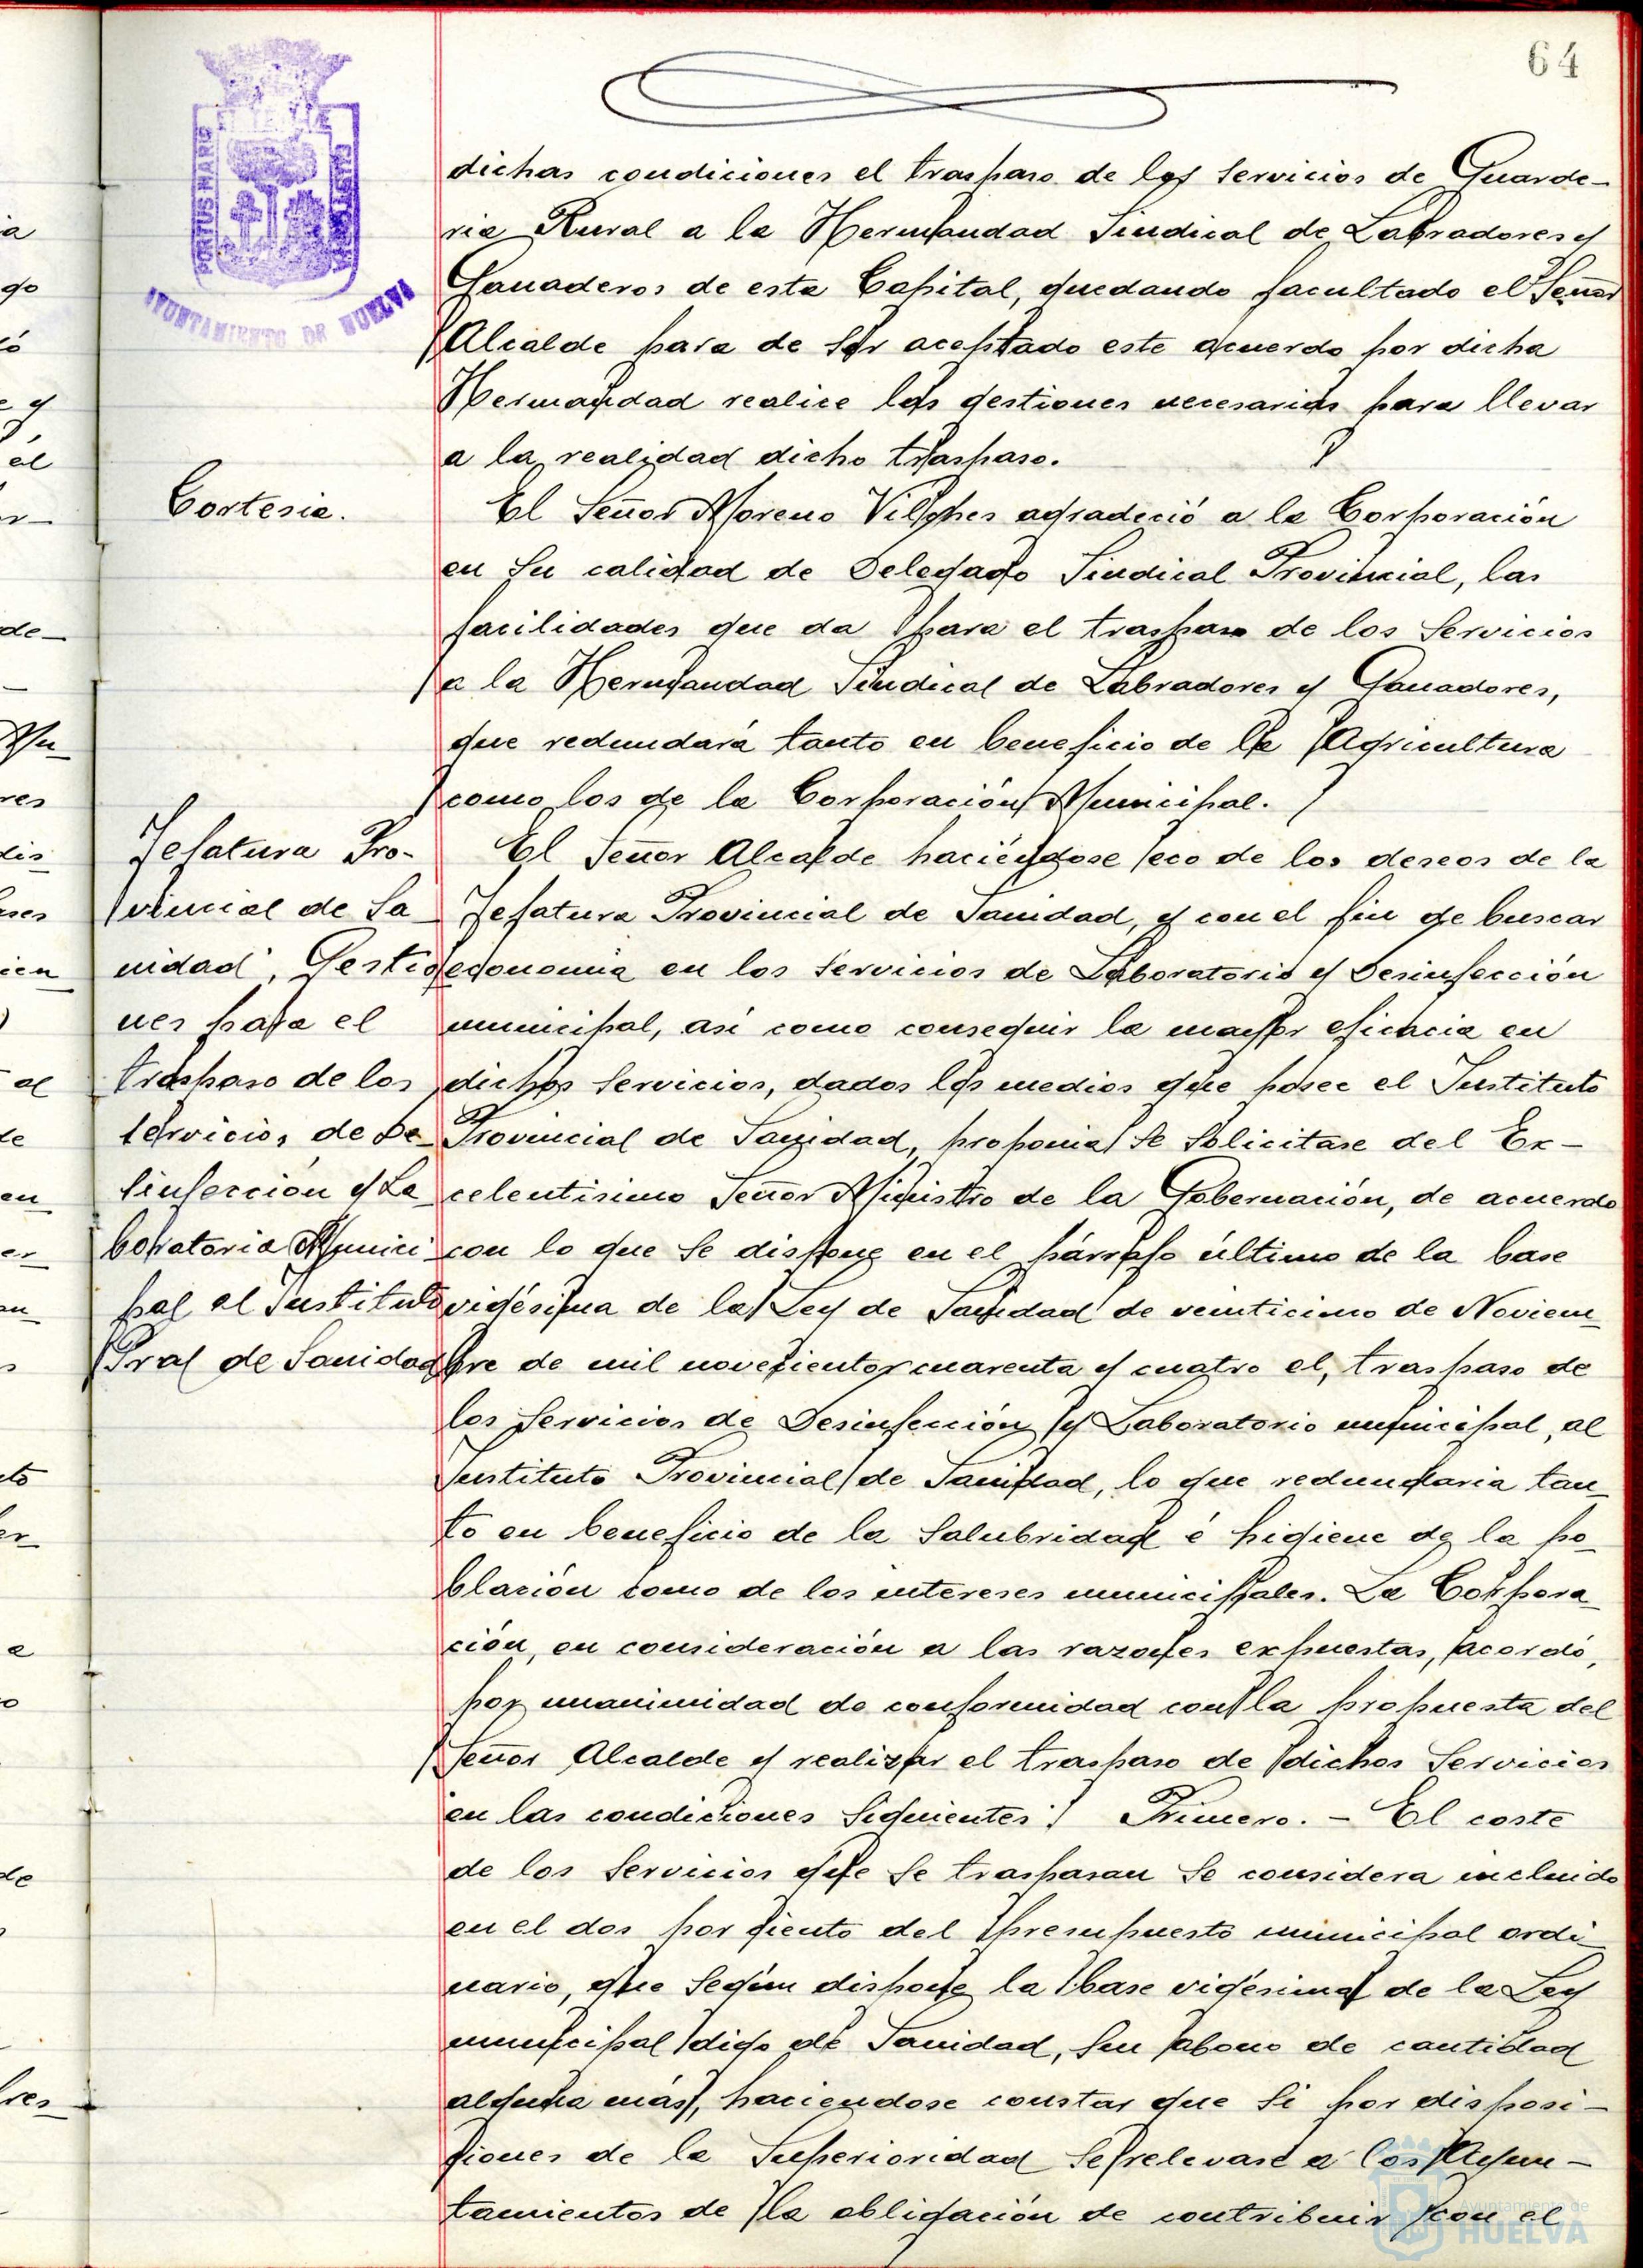 64
PORTUS MARIS
ET TERRAE
CUSTODIA
AYUNTAMIENTO DE HUELVA
dichas condiciones el traspaso de los servicios de Guarde-
ria Rural a la Hermandad Sindical de Labradores y
Ganaderos de esta Capital, quedando facultado el Señor
Alcalde para de ser aceptado este acuerdo por dicha
Hermandad realice las gestiones necesarias para llevar
a la realidad dicho traspaso.
Cortesia.
El Señor Moreno Vilches agradeció a la Corporación
en su calidad de Delegado Sindical Provincial, las
facilidades que da para el traspaso de los servicios
a la Hermandad Sindical de Labradores y Ganadores,
que redundará tanto en beneficio de la Agricultura
como los de la Corporación Municipal.
Jefatura Pro-
vincial de Sa-
nidad, Gestio
nes para el
traspaso de los
servicios de De-
sinfección y La-
boratorio Munici-
pal al Instituto
Pral de Sanidad
El Señor Alcalde haciéndose eco de los deseos de la
Jefatura Provincial de Sanidad, y con el fin de buscar
economia en los servicios de Laboratorio y Desinfección
municipal, asi como conseguir la mayor eficacia en
dichos servicios, dados los medios que posee el Instituto
Provincial de Sanidad, proponia se solicitase del Ex-
celentisimo Señor Ministro de la Gobernación, de acuerdo
con lo que se dispone en el párrafo último de la base
vigésima de la Ley de Sanidad de veinticinco de Noviem-
bre de mil novecientos cuarenta y cuatro el, traspaso de
los servicios de Desinfección y Laboratorio municipal, al
Instituto Provincial de Sanidad, lo que redundaria tan-
to en beneficio de la salubridad é higiene de la po-
blación como de los intereses municipales. La Corpora-
ción, en consideración a las razones expuestas, acordó,
por unanimidad de conformidad con la propuesta del
Señor Alcalde y realizar el traspaso de dichos servicios
en las condiciones siguientes: Primero. - El coste
de los servicios que se traspasan se considera incluido
en el dos por ciento del presupuesto municipal ordi-
nario, que según dispone la base vigésima de la Ley
municipal digo de Sanidad, sin abono de cantidad
alguna más, haciendose constar que si por disposi-
ciones de la Superioridad se relevase a los Ayun-
tamientos de la obligación de contribuir con el
Ayuntamiento de
HUELVA